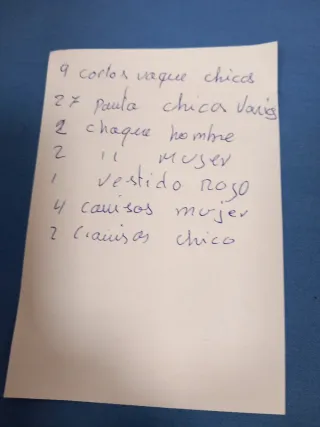 9 cortos vaque chicos
27 panta chicos varios
2 chaque hombre
2 " mujer
1 vestido rozo
4 camisos mujer
2 camisos chico